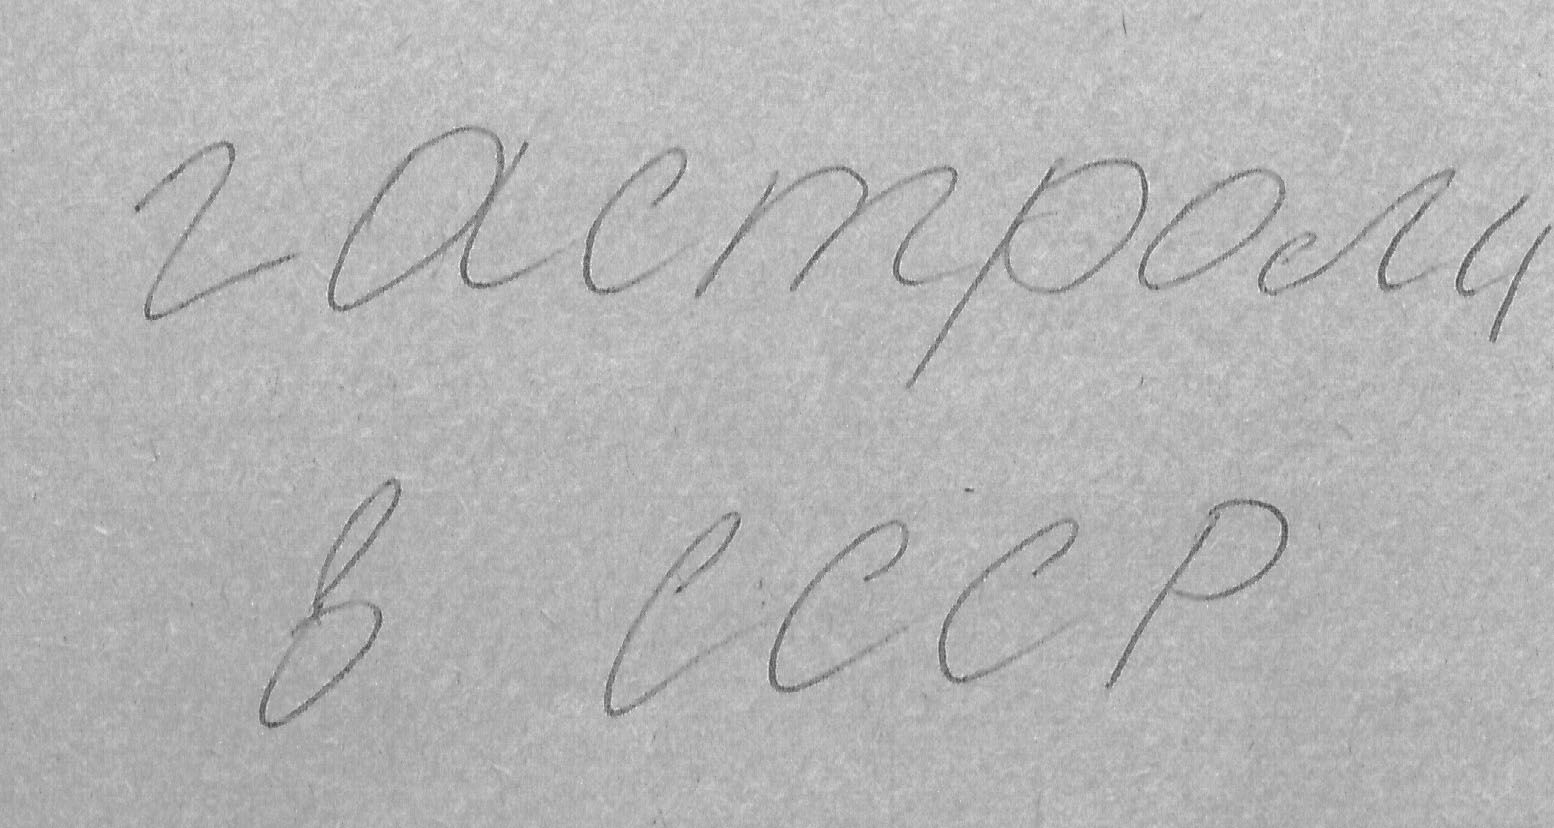 гастроли
в СССР